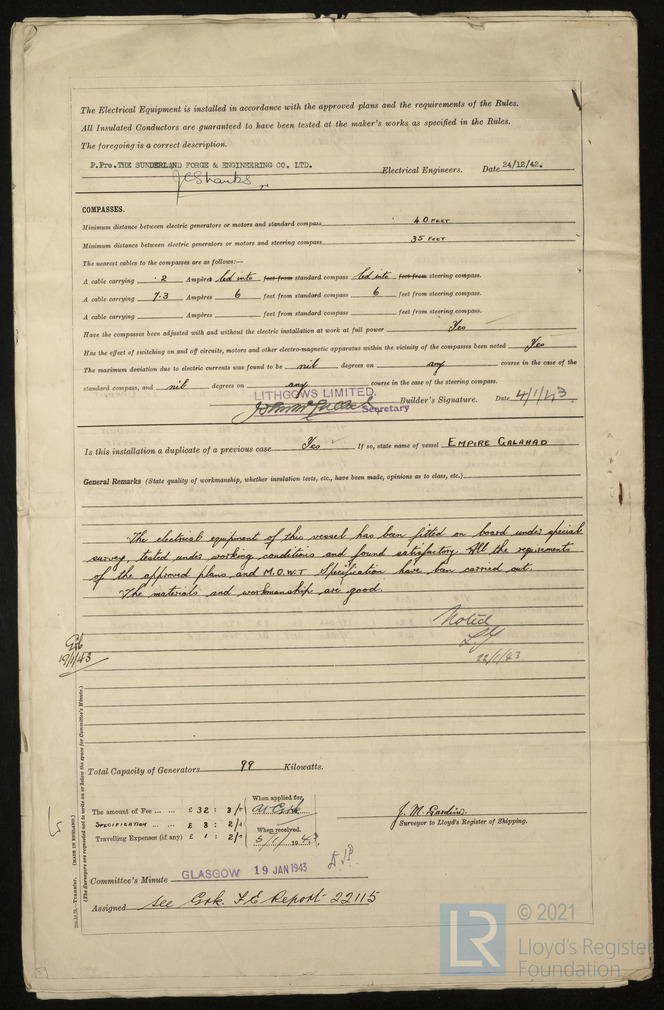 The Electrical Equipment is installed in accordance with the approved plans and the requirements of the Rules.
All Insulated Conductors are guaranteed to have been tested at the maker's works as specified in the Rules.
The foregoing is a correct description.
P.Pro. THE SUNDERLAND FORGE & ENGINEERING CO. LTD.
JC Shanks Electrical Engineers. Date 24/12/42.
COMPASSES.
Minimum distance between electric generators or motors and standard compass 40 FEET
Minimum distance between electric generators or motors and steering compass 35 FEET
The nearest cables to the compasses are as follows:—
A cable carrying .2 Ampères led into feet from standard compass led into feet from steering compass.
A cable carrying 7.3 Ampères 6 feet from standard compass 6 feet from steering compass.
A cable carrying Ampères feet from standard compass feet from steering compass.
Have the compasses been adjusted with and without the electric installation at work at full power Yes
Has the effect of switching on and off circuits, motors and other electro-magnetic apparatus within the vicinity of the compasses been noted Yes
The maximum deviation due to electric currents was found to be nil degrees on any course in the case of the
standard compass, and nil degrees on any course in the case of the steering compass.
LITHGOWS LIMITED.
Secretary Builder's Signature. Date 4/1/43.
Is this installation a duplicate of a previous case Yes If so, state name of vessel EMPIRE GALAHAD
General Remarks (State quality of workmanship, whether insulation tests, etc., have been made, opinions as to class, etc.)
The electrical equipment of this vessel has been fitted on board under special
survey, tested under working conditions and found satisfactory. All the requirements
of the approved plans, and M.O.W.T Specification have been carried out.
The materials and workmanship are good.
Noted
22/1/43
Grk
19/1/43
Total Capacity of Generators 99 Kilowatts.
The amount of Fee ... ... £ 32 : 8/- When applied for,
At Grk
SPECIFICATION £ 8 : 2/-
Travelling Expenses (if any) £ 1 : 2/- When received,
5/1/1943
J. M. Gardiner.
Surveyor to Lloyd's Register of Shipping.
Committee's Minute GLASGOW 19 JAN 1943
Assigned see Grk. F.E Report 22115
(MADE IN ENGLAND.)
(The Surveyors are requested not to write on or below the space for Committee's Minute.)
LR
© 2021
Lloyd's Register
Foundation